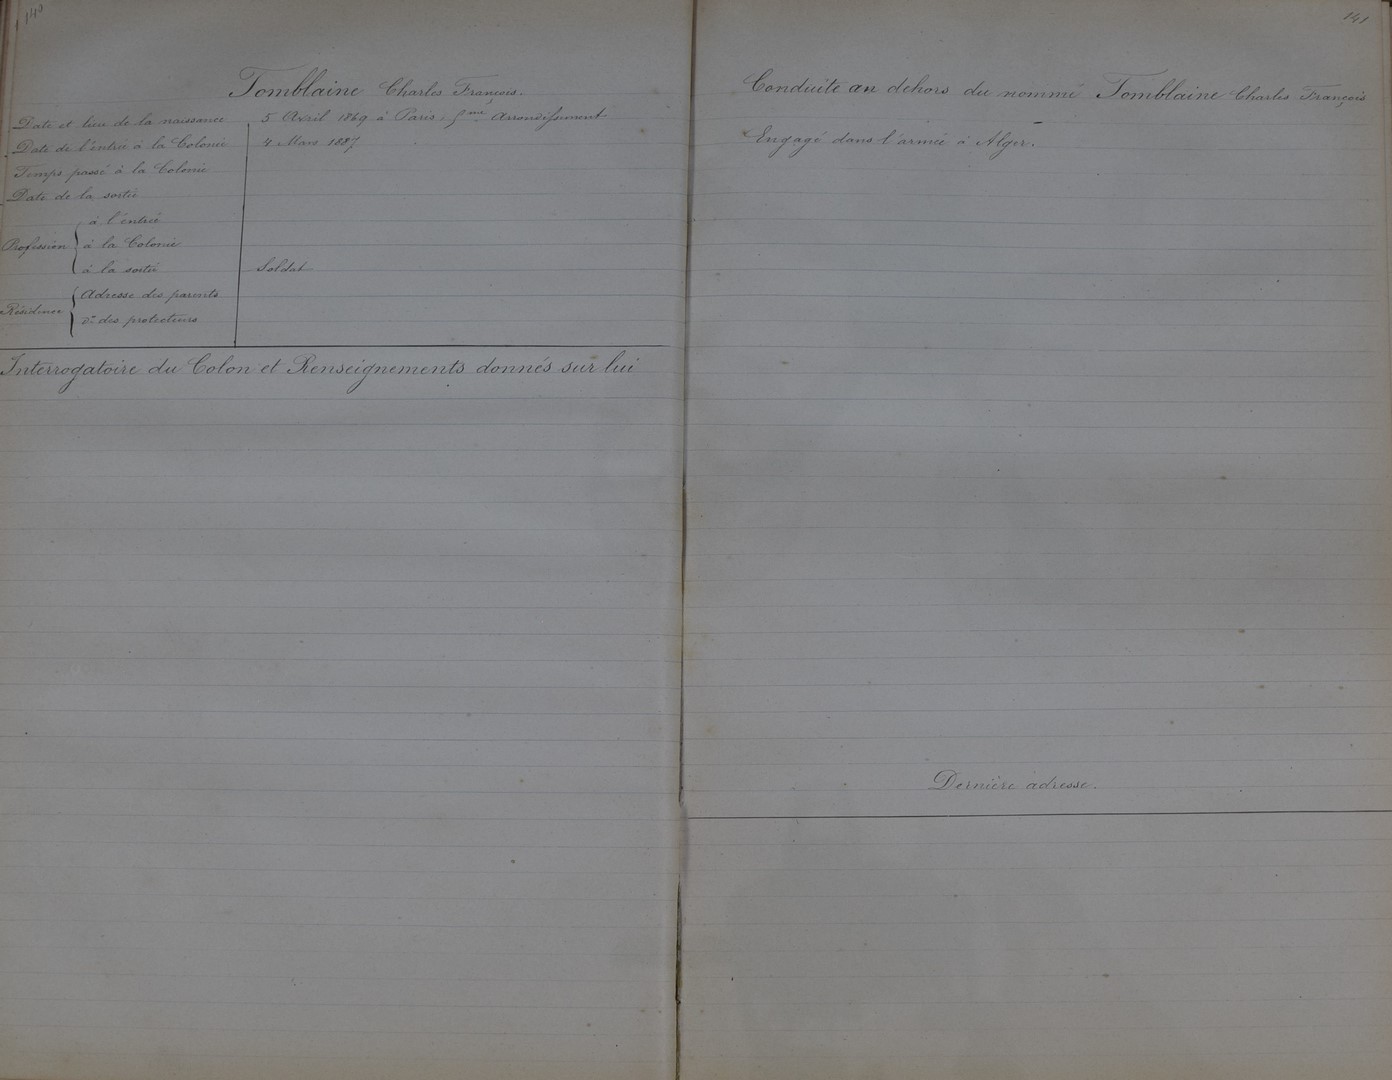 140
Tomblaine Charles François.
Date et lieu de la naissance 5 Avril 1869 à Paris, 5me Arrondissement
Date de l'entrée à la Colonie 4 Mars 1887
Temps passé à la Colonie
Date de la sortie
Profession
à l'entrée
à la Colonie
à la sortie Soldat
Résidence
Adresse des parents
do des protecteurs
Interrogatoire du Colon et Renseignements donnés sur lui
141
Conduite au dehors du nommé Tomblaine Charles François
Engagé dans l'armée à Alger.
Dernière adresse.